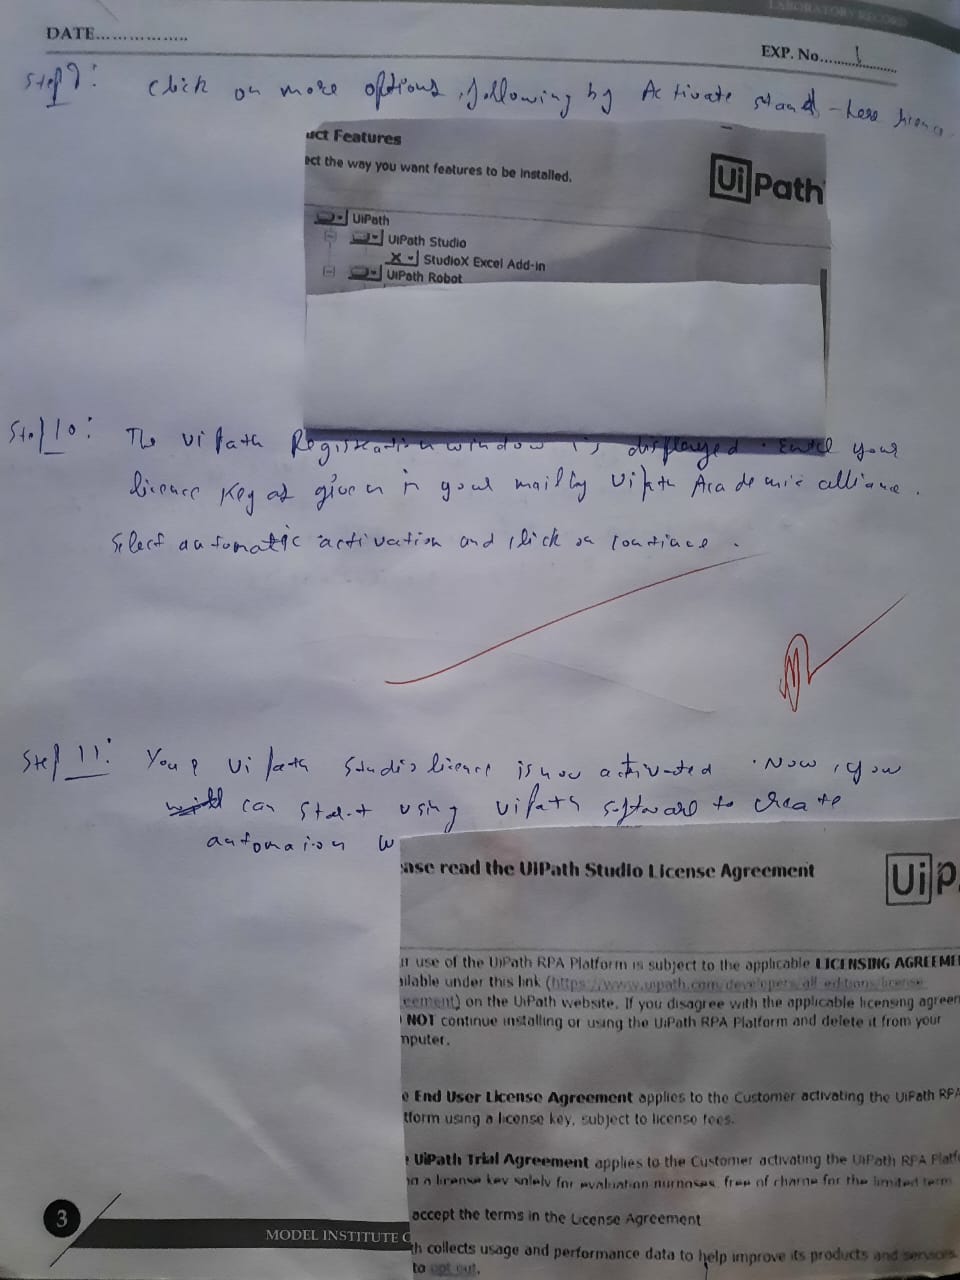 LABORATORY RECORD
DATE................
EXP. No.....1..........
Step 9: Click on more options, following by Activate stand-
UiPath
uct Features
ect the way you want features to be installed.
UiPath
UiPath Studio
X StudioX Excel Add-in
UiPath Robot
Step 10: The UiPath Registration window is displayed. Enter your
licence key as given in your mail by UiPath Academic alliance.
Select automatic activation and click on continue.
Step 11: Your UiPath Studio licence is now activated. Now, you
can start using UiPath software to create
automaion w
ase read the UiPath Studio License Agreement
UiP
ur use of the UiPath RPA Platform is subject to the applicable LICENSING AGREEME
ailable under this link (https://www.uipath.com/developers/all-editions/license-
eement) on the UiPath website. If you disagree with the applicable licensing agreen
NOT continue installing or using the UiPath RPA Platform and delete it from your
mputer.
e End User License Agreement applies to the Customer activating the UiPath RPA
tform using a license key, subject to license fees.
e UiPath Trial Agreement applies to the Customer activating the UiPath RPA Platfo
ng a license key solely for evaluation purposes, free of charge for the limited term
accept the terms in the License Agreement
th collects usage and performance data to help improve its products and services.
to opt out.
3
MODEL INSTITUTE O